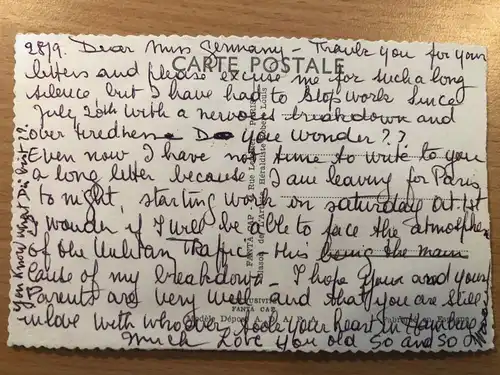 28/9. Dear Miss Germany - Thank you for your
CARTE POSTALE
letters and please excuse me for such a long
silence but I have had to stop work since
July 20th with a nervous breakdown and
over tiredness Do you wonder??
Even now I have no time to write to you
a long letter because I am leaving for Paris
to night, starting work on saturday at 1st
I wonder if I will be able to face the atmosphere
of the Traffic - this being the main
cause of my breakdown - I hope you and your
Parents are very well and that you are still
in love with who ever took your heart in Hambourg
Much Love you old So and So
FANTA CAP
Modèle Déposé